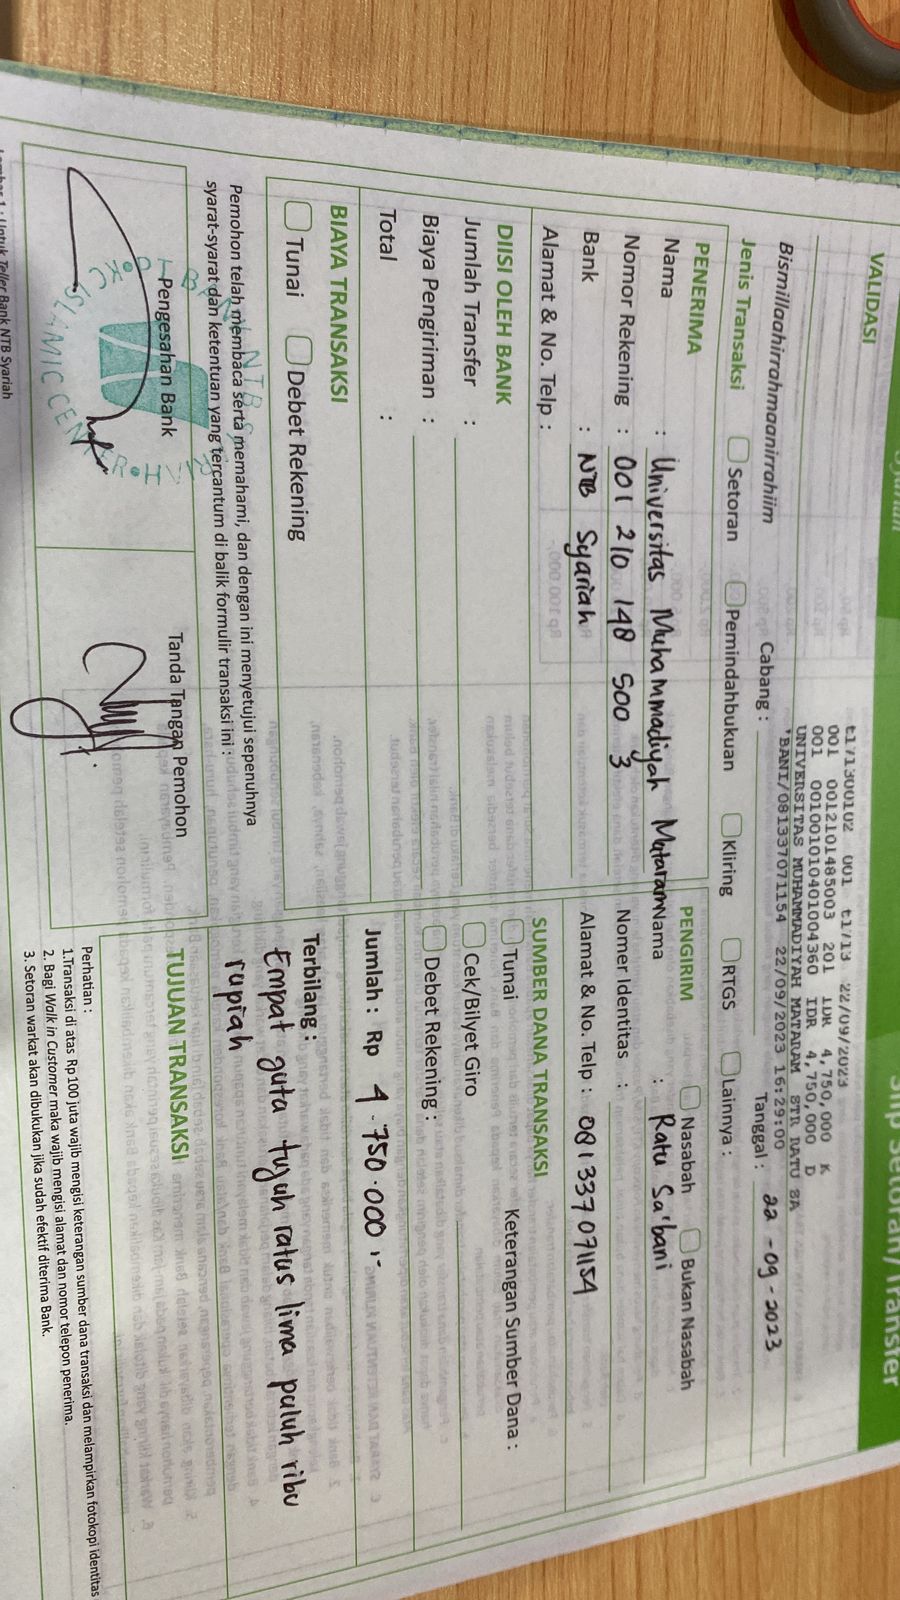 Slip Setoran/Transfer
Syariah
VALIDASI
t1/1300102 001 t1/13 22/09/2023
001 0012101485003 201 IDR 4,750,000 K
001 0010010401004360 IDR 4,750,000 D
UNIVERSITAS MUHAMMADIYAH MATARAM STR RATU SA
'BANI/081337071154 22/09/2023 16:29:00
Bismillaahirrahmaanirrahiim
Cabang :
Tanggal : 22 - 09 - 2023
Jenis Transaksi
Setoran
Pemindahbukuan
Kliring
RTGS
Lainnya :
PENERIMA
Nama : Universitas Muhammadiyah Mataram
Nomor Rekening : 001 210 148 500 3
Bank : NTB Syariah
Alamat & No. Telp :
PENGIRIM
Nasabah
Bukan Nasabah
Nama : Ratu Sa'bani
Nomer Identitas :
Alamat & No. Telp : 081337071154
DIISI OLEH BANK
Jumlah Transfer :
Biaya Pengiriman :
Total :
SUMBER DANA TRANSAKSI
Tunai
Keterangan Sumber Dana :
Cek/Bilyet Giro
Debet Rekening :
BIAYA TRANSAKSI
Tunai
Debet Rekening
Jumlah : Rp 4.750.000,-
Terbilang :
Empat juta tujuh ratus lima puluh ribu
rupiah
Pemohon telah membaca serta memahami, dan dengan ini menyetujui sepenuhnya
syarat-syarat dan ketentuan yang tercantum di balik formulir transaksi ini :
Pengesahan Bank
Tanda Tangan Pemohon
TUJUAN TRANSAKSI
Perhatian :
1.Transaksi di atas Rp 100 juta wajib mengisi keterangan sumber dana transaksi dan melampirkan fotokopi identitas
2. Bagi Walk in Customer maka wajib mengisi alamat dan nomor telepon penerima.
3. Setoran warkat akan dibukukan jika sudah efektif diterima Bank.
Lembar 1 : Untuk Teller Bank NTB Syariah